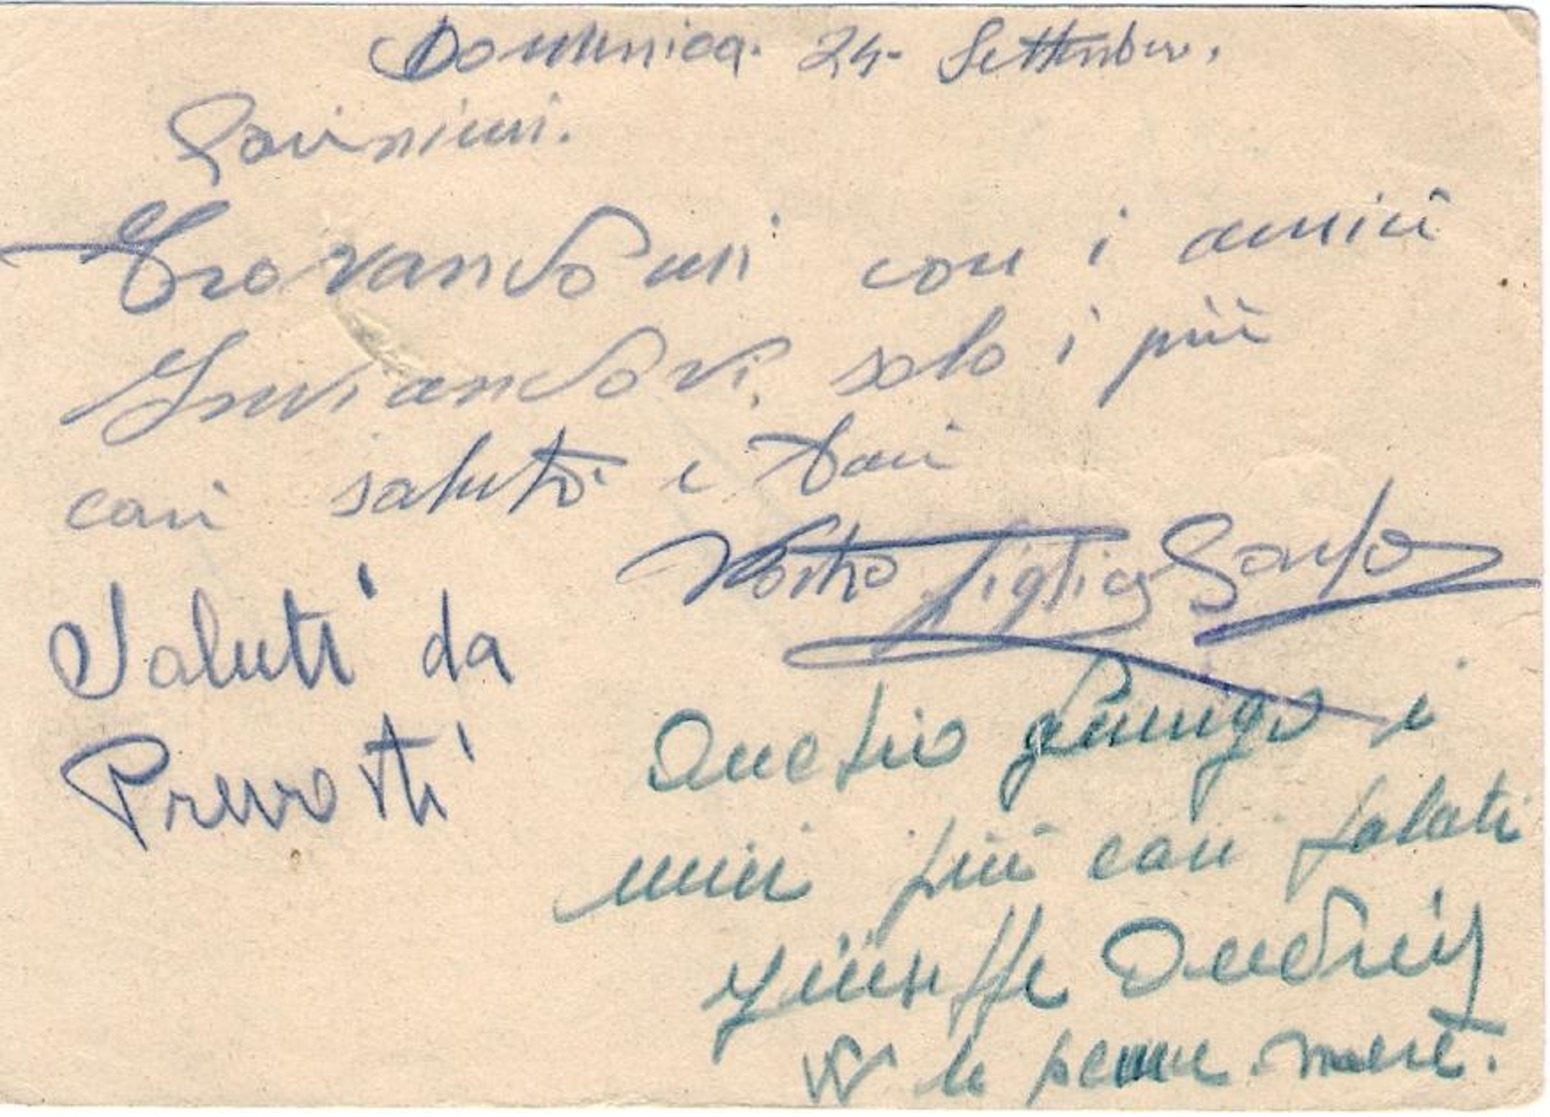 Domenica. 24- Settembre.
Carissimi.
Trovandomi con i amici
Inviandovi, solo i più
cari saluti e baci
Vostro figlio Carlo
Saluti da
Prevosti
Anchio giungo i
miei più cari saluti
Giuseppe
W le penne nere.